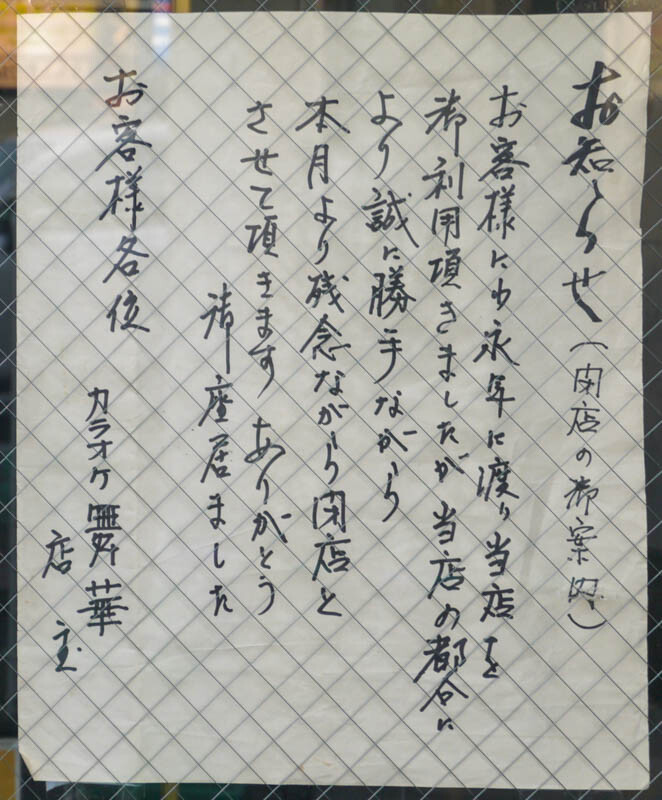 お知らせ(閉店の御案内)
お客様にわ永年に渡り当店を
御利用頂きましたが当店の都合に
より誠に勝手ながら
本月より残念ながら閉店と
させて頂きます ありがとう
御座居ました
お客様各位
カラオケ舞華
店主